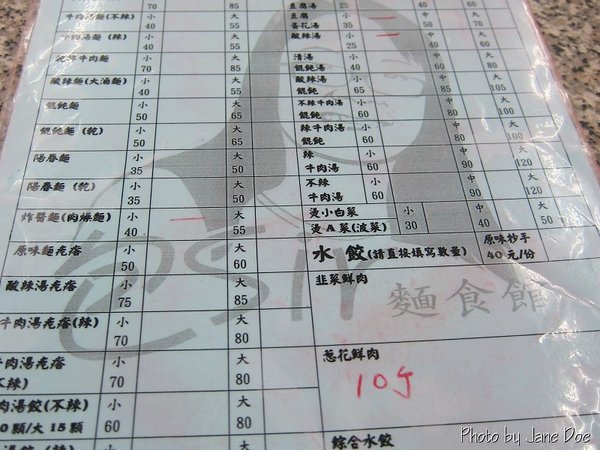 70 85 25
牛肉湯麵(不辣) 小 大 豆腐 一 中 大
40 55 蛋花湯 35 50
牛肉湯麵(辣) 小 大 酸辣湯 小 一 中 大
40 55 25 40 45
牛肉麵 小 大 清湯 小 中 大
70 85 餛飩湯 40 60 80
酸辣麵(大滷麵) 小 大 酸辣湯 小 中 大
40 55 餛飩 65 85 105
餛飩麵 小 大 不辣牛肉湯 小 中 大
50 65 餛飩 60 80 100
餛飩麵(乾) 小 大 辣牛肉湯 小 中 大
50 65 餛飩 60 80 100
陽春麵 小 大 辣 小 中 大
35 50 牛肉湯 60 90 120
陽春麵(乾) 小 大 不辣 小 中 大
35 50 牛肉湯 60 90 120
炸醬麵(肉燥麵) 小 一 大 燙小白菜 小 中 大
40 55 燙A菜(波菜) 30 40 50
原味麵疙瘩 小 大 水餃(請直接填寫數量) 原味抄手
50 60 40元/份
酸辣湯疙瘩 小 大 韭菜鮮肉
75 85 麵食館
牛肉湯疙瘩(辣) 小 大
70 80
牛肉湯疙瘩 小 大 蔥花鮮肉
(不辣) 70 80 10子
肉湯餃(不辣) 小 大
0顆/大15顆 60 80 綜合水餃
小 大
Photo by Jane Doe